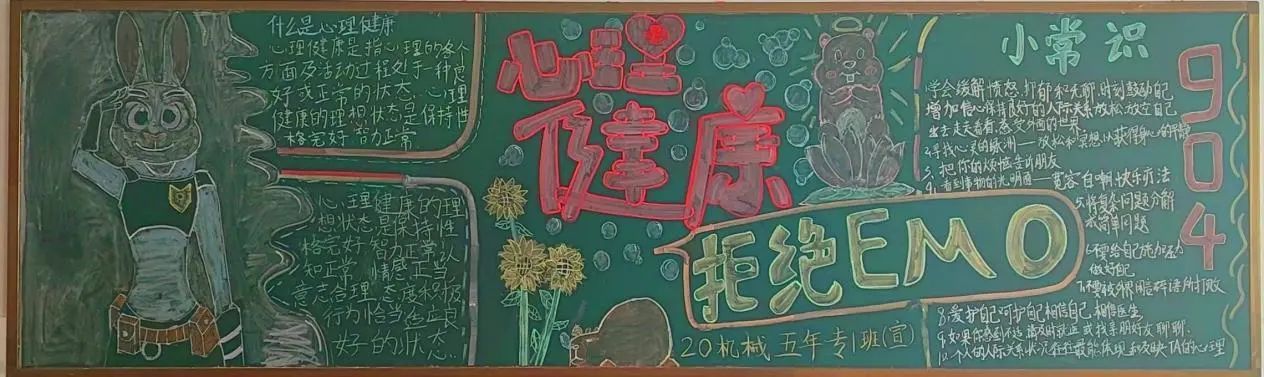 什么是心理健康
心理健康是指心理的各个
方面及活动过程处于一种良
好或正常的状态。心理
健康的理想状态是保持性
格完好、智力正常
心理健康的理
想状态是保持性
格完好、智力正常、认
知正常、情感正当、
意志合理、态度积极、
行为恰当、适应良
好的状态
心理
健康
拒绝EMO
20机械五年专1班(宣)
小常识
904
学会缓解愤怒、抑郁和无聊,时刻鼓励自己
增加信心保持良好的人际关系放松放立自己
出去走走看看,感受外面的世界
2.寻找心灵的绿洲——放松和冥想以获得身心的平静
3.把你的烦恼告诉朋友
4.看到事物的光明面——宽容自嘲快乐疗法
5.将复杂问题分解
成简单问题
6.不要给自己施加压力
做好自己
7.不要被外界闲言碎语所打败
8.爱护自己呵护自己相信自己,相信医生
9.如果你感到不适请及时就医或找亲朋好友聊聊.
10.个人的人际关系状况往往最能体现和反映TA的心理